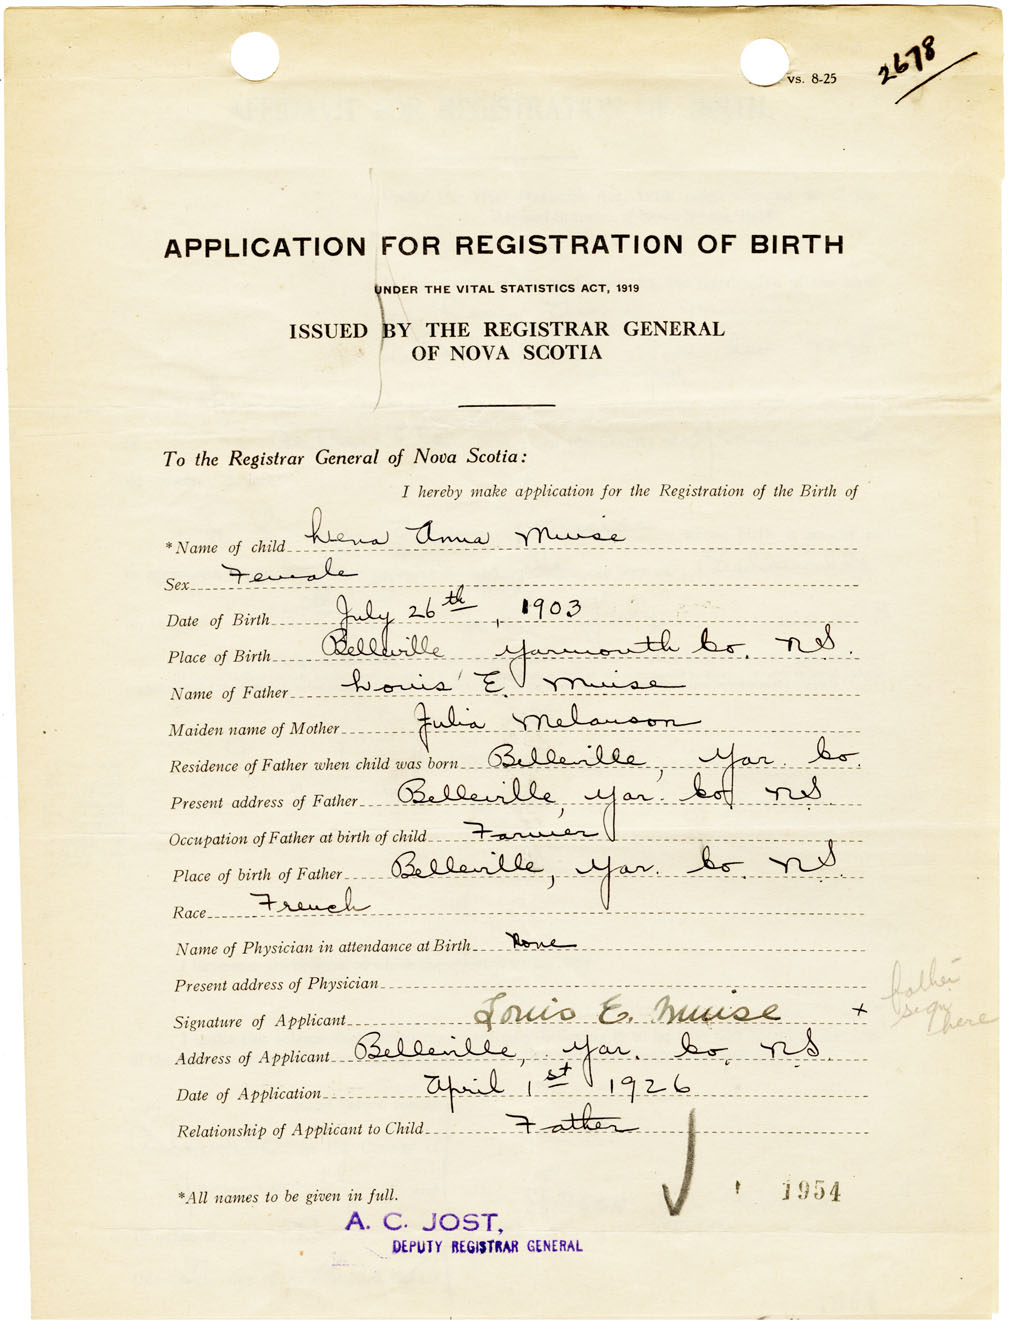 2678
vs. 8-25
APPLICATION FOR REGISTRATION OF BIRTH
UNDER THE VITAL STATISTICS ACT, 1919
ISSUED BY THE REGISTRAR GENERAL
OF NOVA SCOTIA
To the Registrar General of Nova Scotia:
I hereby make application for the Registration of the Birth of
*Name of child Lena Anna Muise
Sex Female
Date of Birth July 26th, 1903
Place of Birth Belleville Yarmouth Co. N.S.
Name of Father Louis E. Muise
Maiden name of Mother Julia Melanson
Residence of Father when child was born Belleville, Yar. Co.
Present address of Father Belleville, Yar. Co, N.S.
Occupation of Father at birth of child Farmer
Place of birth of Father Belleville, Yar. Co. N.S.
Race French
Name of Physician in attendance at Birth None
Present address of Physician
Signature of Applicant Louis E. Muise x
father
sign
here
Address of Applicant Belleville, Yar. Co, N.S.
Date of Application April 1st 1926
Relationship of Applicant to Child Father
*All names to be given in full.
1954
A. C. JOST,
DEPUTY REGISTRAR GENERAL